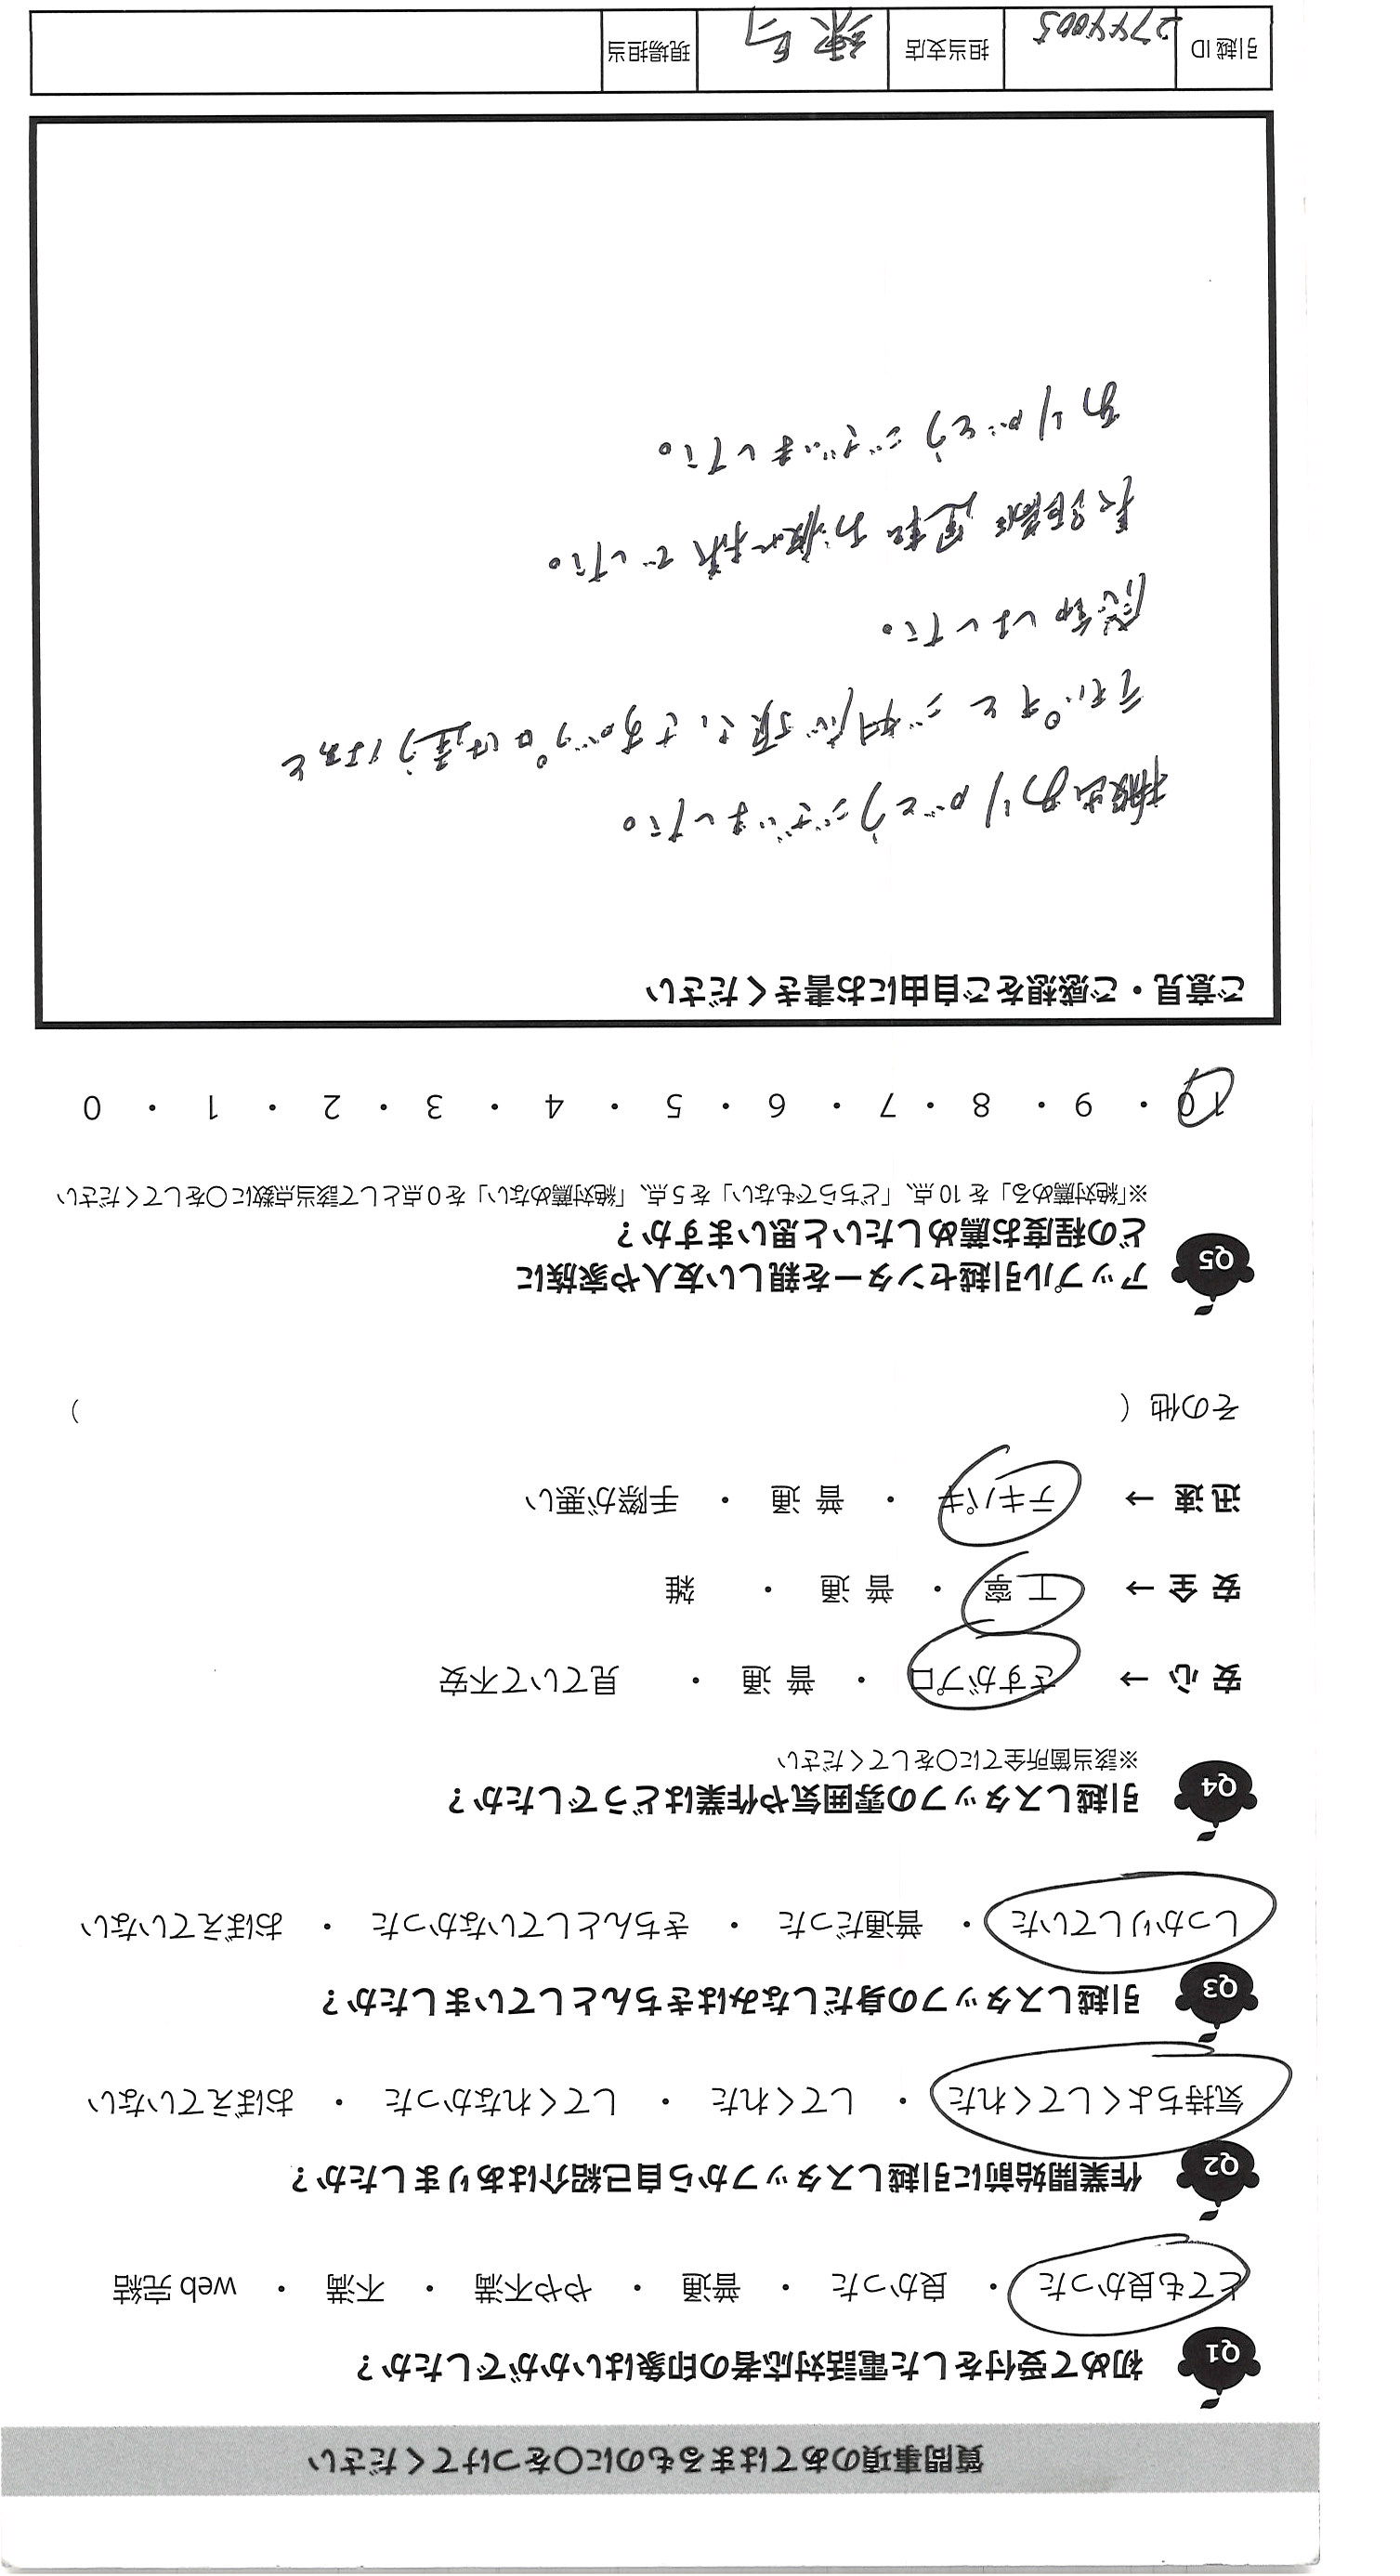 質問事項のあてはまるものに〇をつけてください
Q1 初めて受付をした電話対応者の印象はいかがでしたか？
とても良かった ・ 良かった ・ 普通 ・ やや不満 ・ 不満 ・ web 完結
Q2 作業開始前に引越しスタッフから自己紹介はありましたか？
気持ちよくしてくれた ・ してくれた ・ してくれなかった ・ おぼえていない
Q3 引越しスタッフの身だしなみはきちんとしていましたか？
しっかりしていた ・ 普通だった ・ きちんとしていなかった ・ おぼえていない
Q4 引越しスタッフの雰囲気や作業はどうでしたか？
※該当箇所全てに〇をしてください
安 心 → さすがプロ ・ 普 通 ・ 見ていて不安
安 全 → 丁 寧 ・ 普 通 ・ 雑
迅 速 → テキパキ ・ 普 通 ・ 手際が悪い
その他 （ ）
Q5 アップル引越センターを親しい友人や家族に
どの程度お薦めしたいと思いますか？
※「絶対薦める」を 10 点、「どちらでもない」を 5 点、「絶対薦めない」を 0 点として該当点数に〇をしてください
10 ・ 9 ・ 8 ・ 7 ・ 6 ・ 5 ・ 4 ・ 3 ・ 2 ・ 1 ・ 0
ご意見・ご感想をご自由にお書きください
搬出ありがとうございました。
テキパキとご対応頂き、さすがプロは違うなぁと
感動しました。
長距離運転お疲れ様でした。
ありがとうございました。
引越 ID 2744005 担当支店 練馬 現場担当